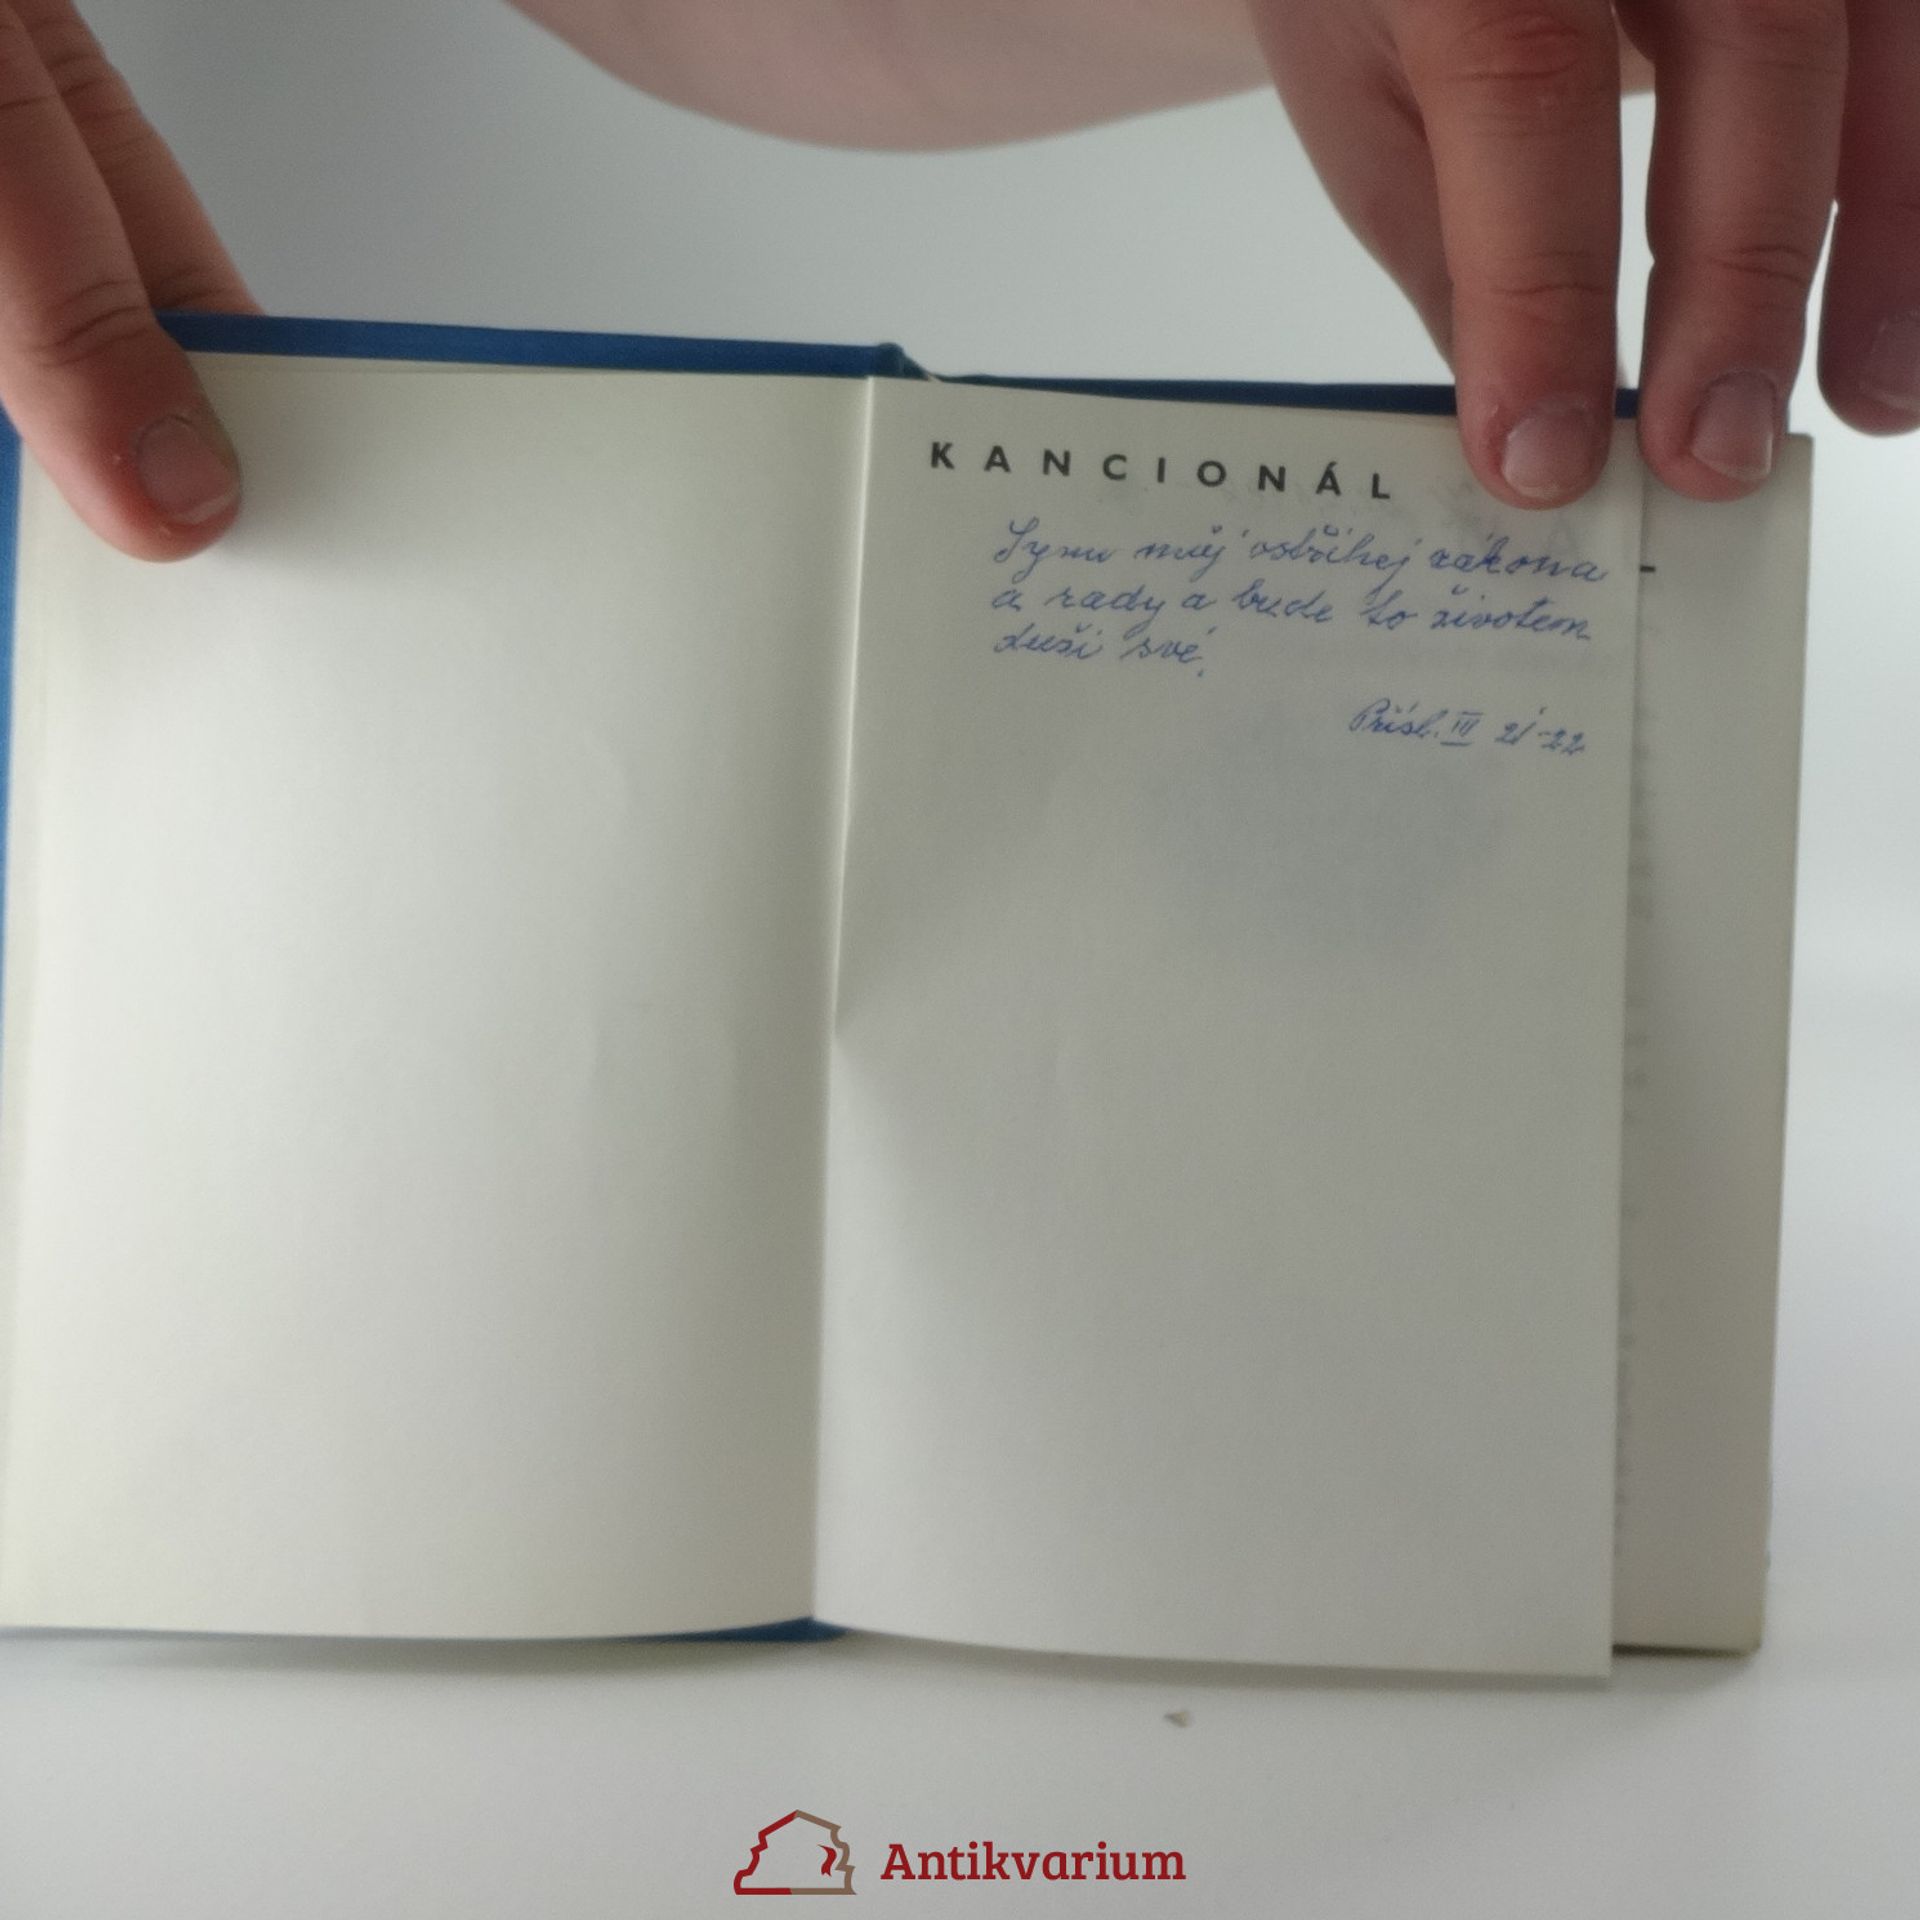 KANCIONÁL
Synu můj ostříhej zákona
a rady a bude to životem
duši své.
Přísl. III 21-22
Antikvarium